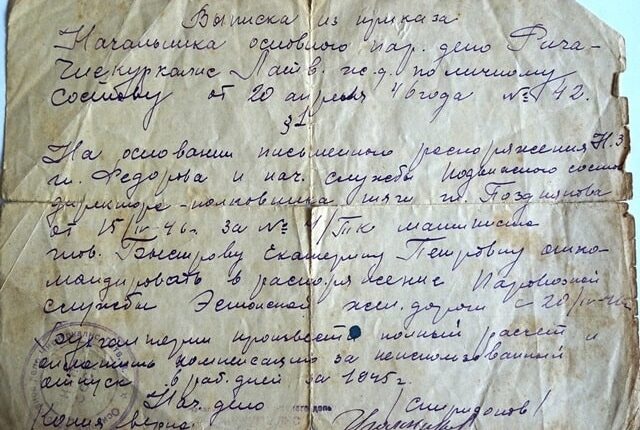 Выписка из приказа
Начальника основного пар. депо Рига-
Чиекуркалнс Латв. ж.д. по личному
составу от 20 апреля 46 года № 42.
§1
На основании письменного распоряжения Н.З
т. Федорова и нач. службы подвижного состава
директора-полковника тяги т. Позднякова
от 15/IV-46г. за № 4/Тк машиниста
тов. Быстрову Екатерину Петровну отко-
мандировать в распоряжение Паровозной
службы Эстонской жел. дороги с 20/IV-46
Бухгалтерии произвести полный расчет и
оплатить компенсацию за неиспользованный
отпуск раб. дней за 1945г.
Нач. депо /Спиридонов/
Копия верна: